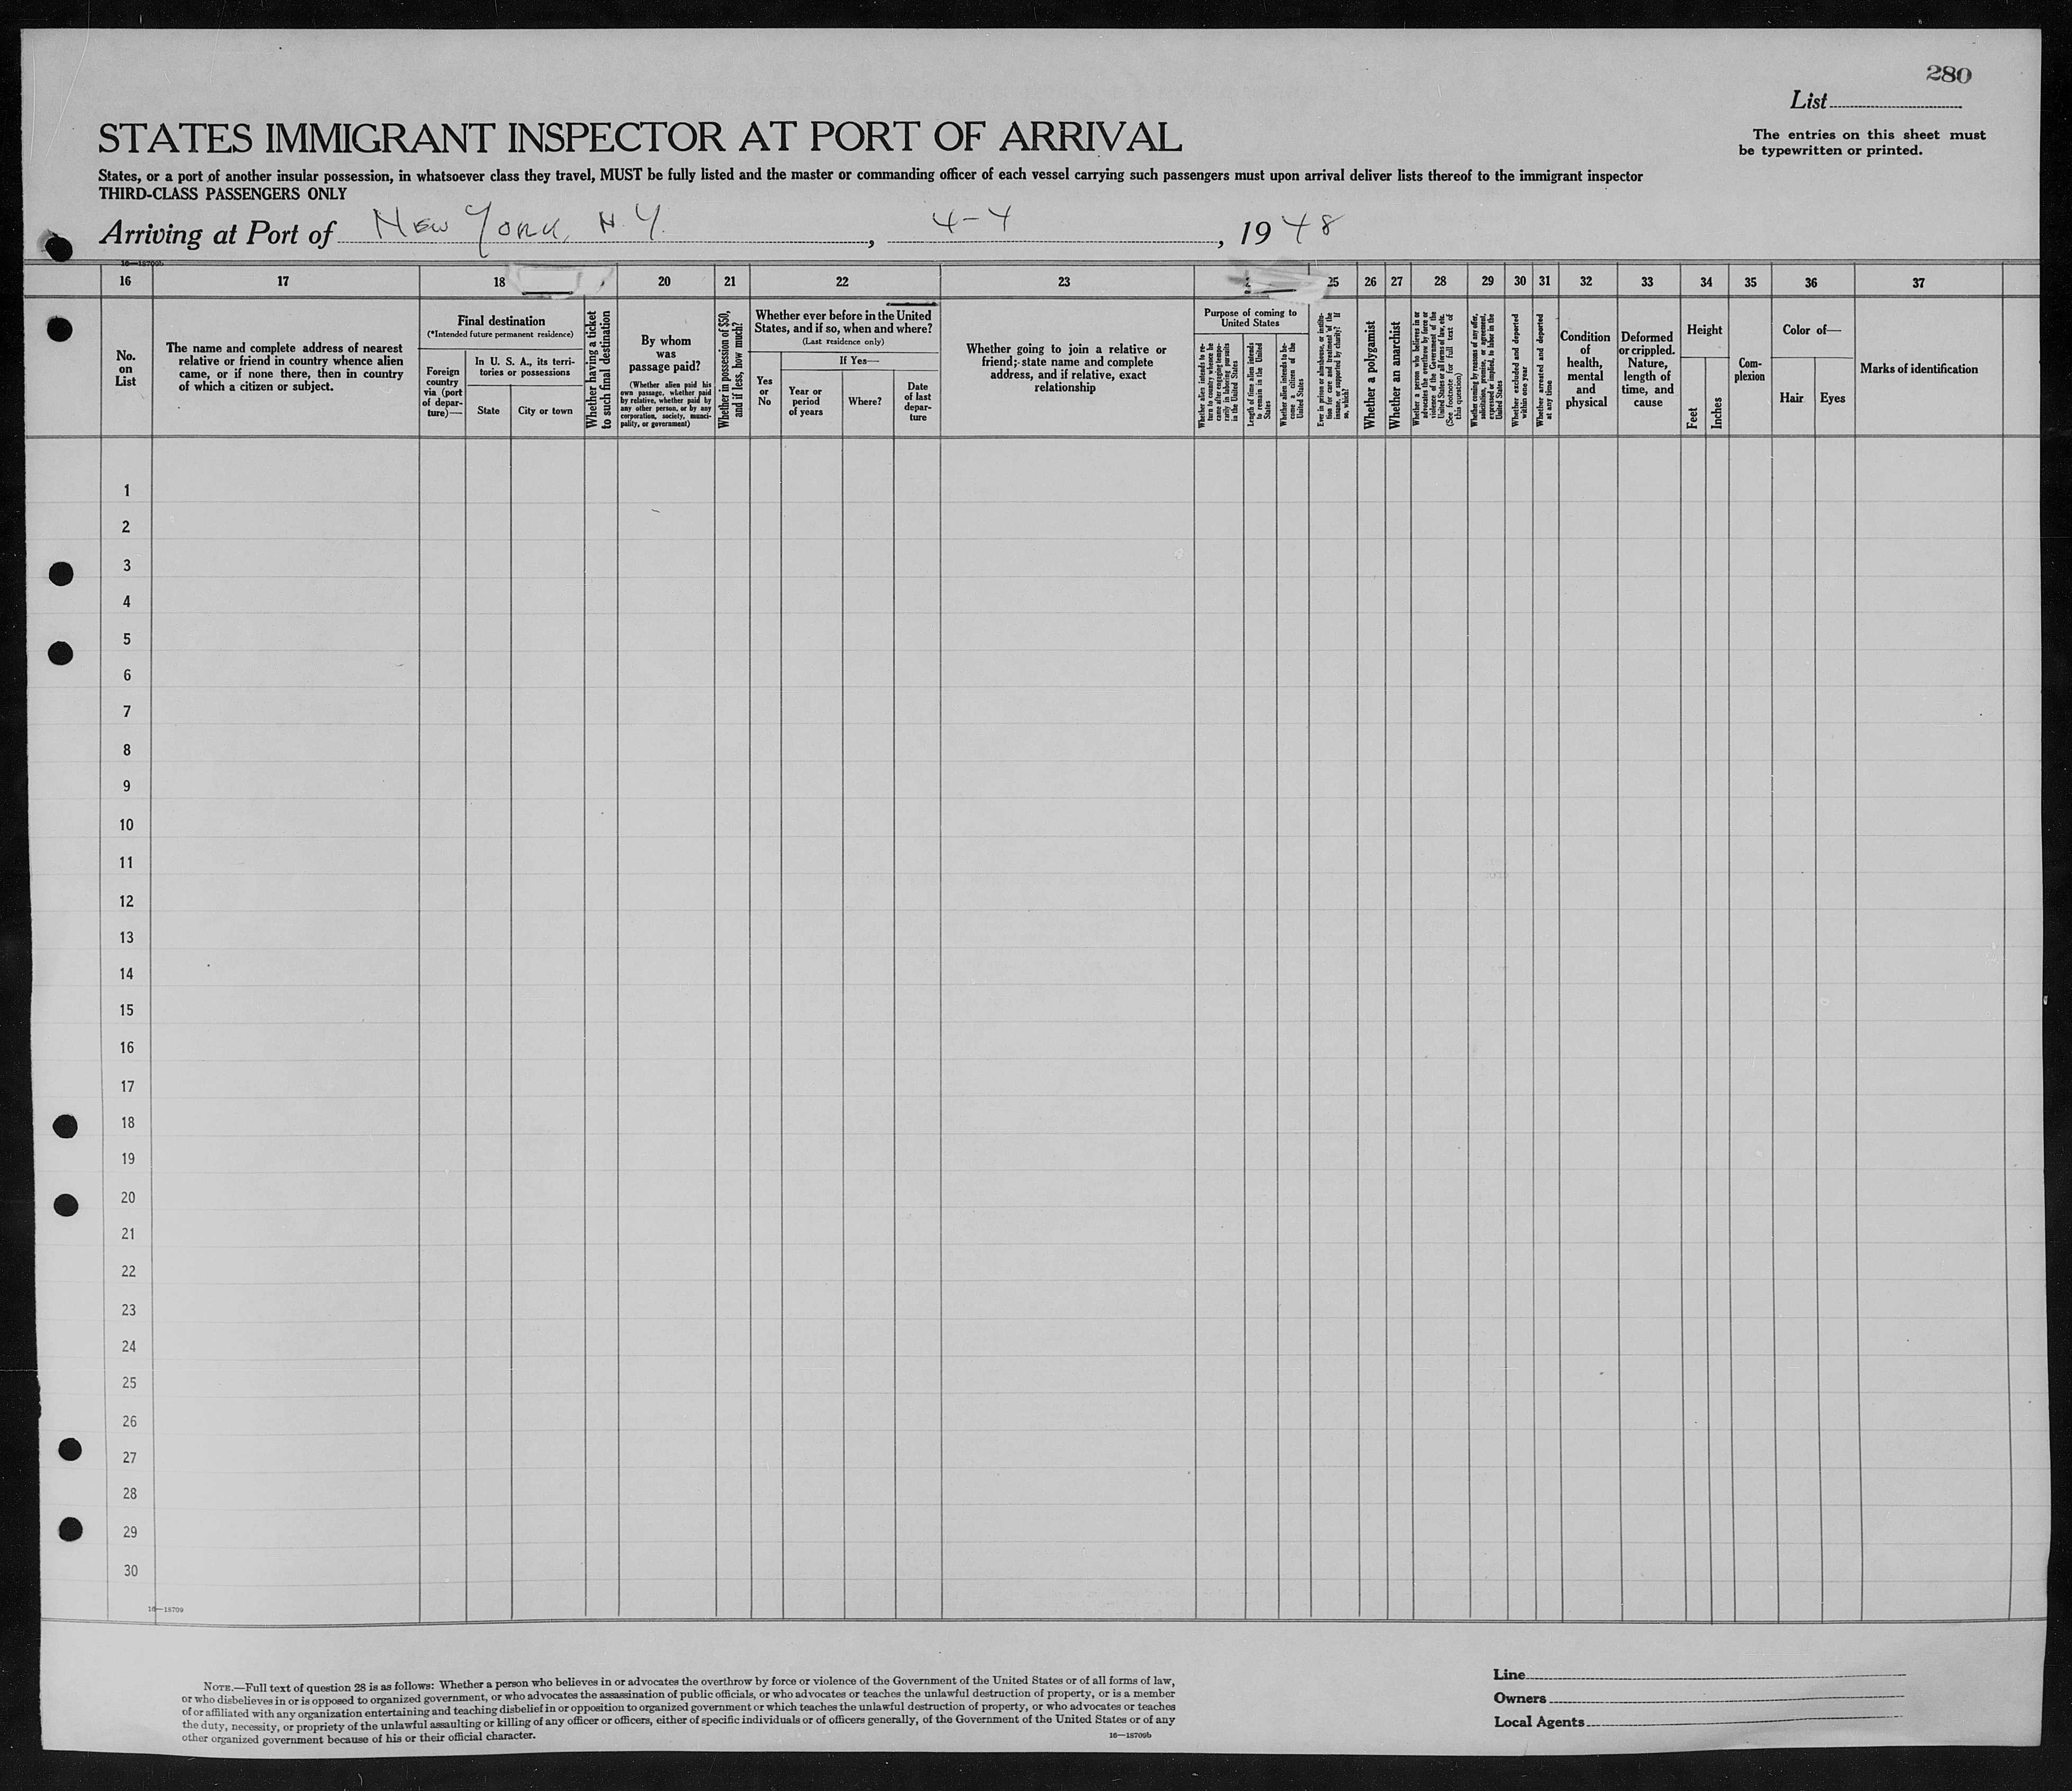 280
List
STATES IMMIGRANT INSPECTOR AT PORT OF ARRIVAL
The entries on this sheet must
be typewritten or printed.
States, or a port of another insular possession, in whatsoever class they travel, MUST be fully listed and the master or commanding officer of each vessel carrying such passengers must upon arrival deliver lists thereof to the immigrant inspector
THIRD-CLASS PASSENGERS ONLY
Arriving at Port of New York, N.Y. , 4-4 , 1948
16—18709b
16 17 18 20 21 22 23 25 26 27 28 29 30 31 32 33 34 35 36 37
No.
on
List
The name and complete address of nearest
relative or friend in country whence alien
came, or if none there, then in country
of which a citizen or subject.
Final destination
(*Intended future permanent residence)
Foreign
country
via (port
of depar-
ture)—
In U. S. A., its terri-
tories or possessions
State
City or town
Whether having a ticket
to such final destination
By whom
was
passage paid?
(Whether alien paid his
own passage, whether paid
by relative, whether paid by
any other person, or by any
corporation, society, munici-
pality, or government)
Whether in possession of $50,
and if less, how much?
Whether ever before in the United
States, and if so, when and where?
(Last residence only)
Yes
or
No
If Yes—
Year or
period
of years
Where?
Date
of last
depar-
ture
Whether going to join a relative or
friend; state name and complete
address, and if relative, exact
relationship
Purpose of coming to
United States
Whether alien intends to re-
turn to country whence he
came after engaging tempo-
rarily in laboring pursuits
in the United States
Length of time alien intends
to remain in the United
States
Whether alien intends to be-
come a citizen of the
United States
Ever in prison or almshouse, or institu-
tion for care and treatment of the
insane, or supported by charity? If
so, which?
Whether a polygamist
Whether an anarchist
Whether a person who believes in or
advocates the overthrow by force or
violence of the Government of the
United States or all forms of law, etc.
(See footnote for full text of
this question)
Whether coming by reasons of any offer,
solicitation, promise, or agreement,
expressed or implied, to labor in the
United States
Whether excluded and deported
within one year
Whether arrested and deported
at any time
Condition
of
health,
mental
and
physical
Deformed
or crippled.
Nature,
length of
time, and
cause
Height
Feet
Inches
Com-
plexion
Color of—
Hair
Eyes
Marks of identification
1
2
3
4
5
6
7
8
9
10
11
12
13
14
15
16
17
18
19
20
21
22
23
24
25
26
27
28
29
30
16—18709
NOTE.—Full text of question 28 is as follows: Whether a person who believes in or advocates the overthrow by force or violence of the Government of the United States or of all forms of law,
or who disbelieves in or is opposed to organized government, or who advocates the assassination of public officials, or who advocates or teaches the unlawful destruction of property, or is a member
of or affiliated with any organization entertaining and teaching disbelief in or opposition to organized government or which teaches the unlawful destruction of property, or who advocates or teaches
the duty, necessity, or propriety of the unlawful assaulting or killing of any officer or officers, either of specific individuals or of officers generally, of the Government of the United States or of any
other organized government because of his or their official character.
16—18709b
Line
Owners
Local Agents